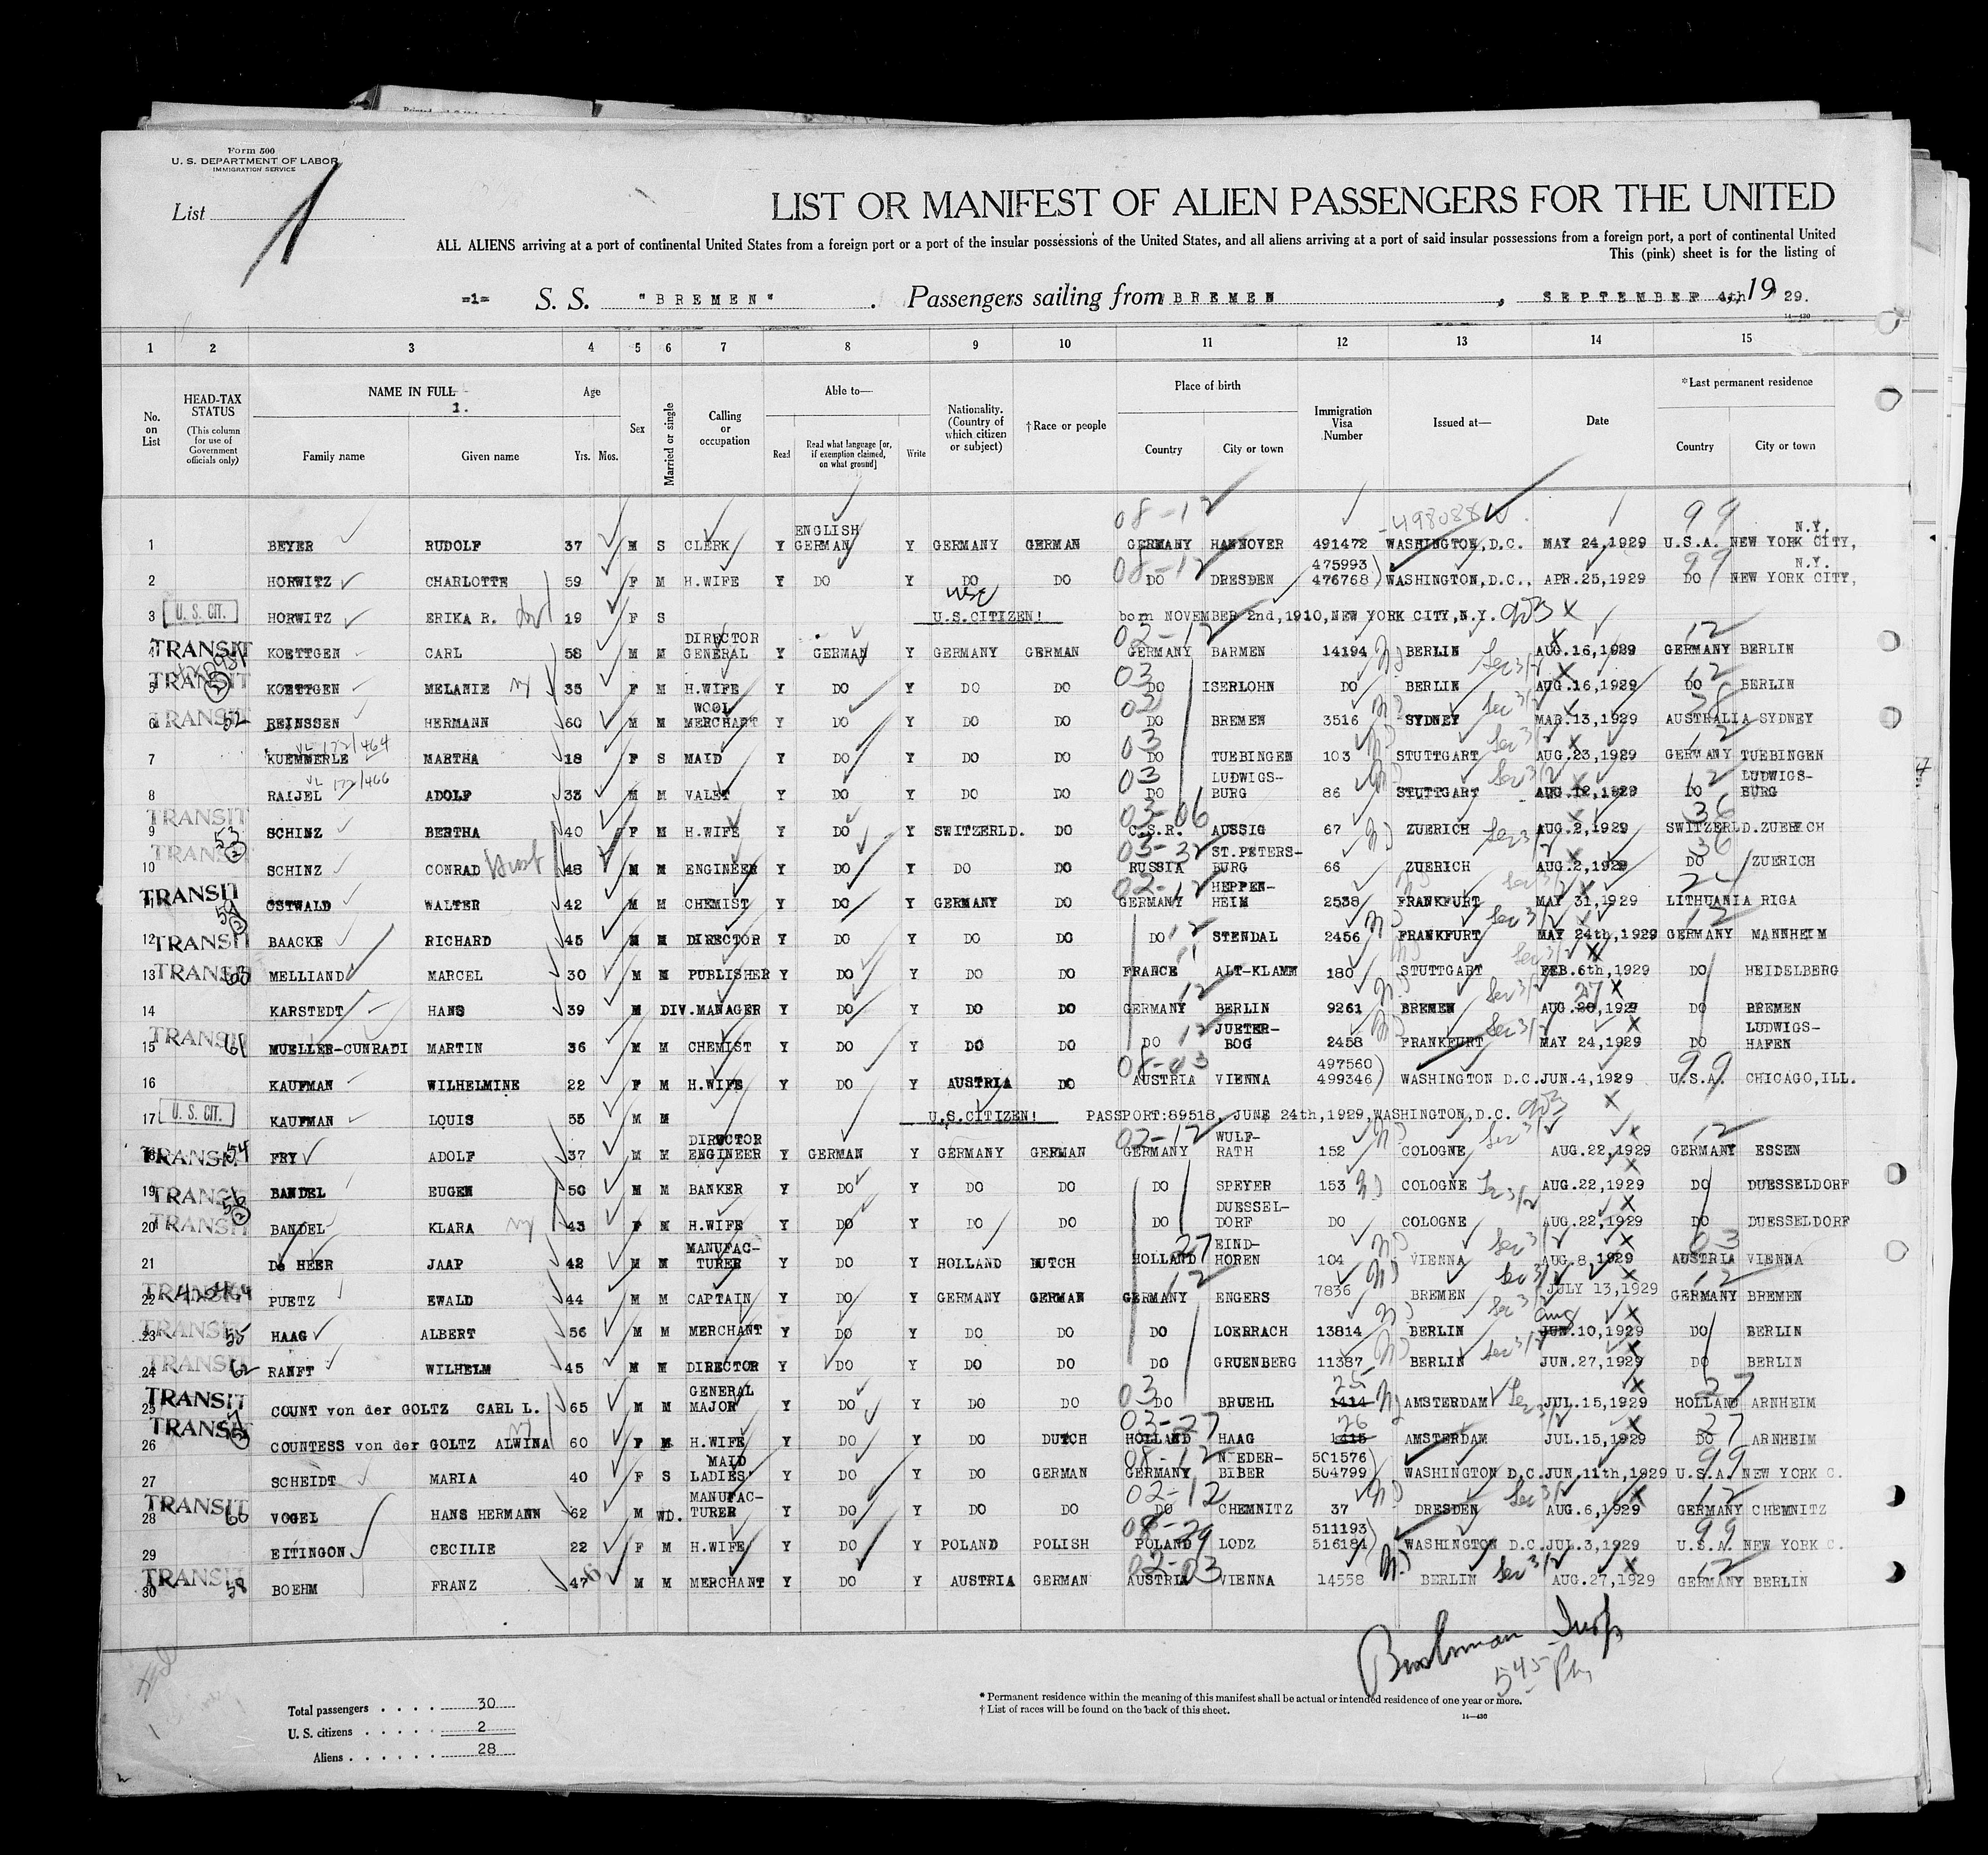 Form 500
U. S. DEPARTMENT OF LABOR
IMMIGRATION SERVICE
List 1
LIST OR MANIFEST OF ALIEN PASSENGERS FOR THE UNITED
ALL ALIENS arriving at a port of continental United States from a foreign port or a port of the insular possessions of the United States, and all aliens arriving at a port of said insular possessions from a foreign port, a port of continental United
This (pink) sheet is for the listing of
=1= S. S. "BREMEN". Passengers sailing from BREMEN, SEPTEMBER 4th, 19 29.
14—430
1 2 3 4 5 6 7 8 9 10 11 12 13 14 15
No. on List
HEAD-TAX STATUS (This column for use of Government officials only)
NAME IN FULL 1.
Family name Given name
Age Yrs. Mos.
Sex
Married or single
Calling or occupation
Able to— Read Read what language [or, if exemption claimed, on what ground] Write
Nationality. (Country of which citizen or subject)
†Race or people
Place of birth Country City or town
Immigration Visa Number
Issued at—
Date
*Last permanent residence Country City or town
08-12 498088 99
1 BEYER RUDOLF 37 M S CLERK Y ENGLISH GERMAN Y GERMANY GERMAN GERMANY HANNOVER 491472 WASHINGTON, D.C. MAY 24,1929 U.S.A. NEW YORK CITY, N.Y.
2 HORWITZ CHARLOTTE 59 F M H.WIFE Y DO Y DO DO 08-12 DO DRESDEN 475993 476768) WASHINGTON,D.C., APR.25,1929 99 DO NEW YORK CITY, N.Y.
3 U. S. CIT. HORWITZ ERIKA R. 19 F S USC U.S.CITIZEN! born NOVEMBER 2nd,1910,NEW YORK CITY,N.Y. X
4 TRANSIT KOETTGEN CARL 58 M M DIRECTOR GENERAL Y GERMAN Y GERMANY GERMAN 02-12 GERMANY BARMEN 14194 BERLIN AUG.16,1929 12 GERMANY BERLIN
5 TRANSIT KOETTGEN MELANIE 35 F M H.WIFE Y DO Y DO DO 03 DO ISERLOHN DO BERLIN Sec 3/2 AUG.16,1929 12 DO BERLIN
6 TRANSIT 52 BEINSSEN HERMANN 60 M M WOOL MERCHANT Y DO Y DO DO 02 DO BREMEN 3516 SYDNEY Sec 3/2 MAR.13,1929 38 AUSTRALIA SYDNEY
7 KUEMMERLE VL 172/464 MARTHA 18 F S MAID Y DO Y DO DO 03 DO TUEBINGEN 103 STUTTGART Sec 3/2 AUG.23,1929 12 GERMANY TUEBINGEN
8 RAIJEL VL 172/466 ADOLF 33 M M VALET Y DO Y DO DO 03 DO LUDWIGS-BURG 86 STUTTGART Sec 3/2 AUG.12,1929 12 DO LUDWIGS-BURG
9 TRANSIT 53 SCHINZ BERTHA 40 F M H.WIFE Y DO Y SWITZERLD. DO 03-06 C.S.R. AUSSIG 67 ZUERICH Sec 3/2 AUG.2,1929 36 SWITZERLD.ZUERICH
10 TRANSIT 2 SCHINZ CONRAD Hust 48 M M ENGINEER Y DO Y DO DO 03-32 RUSSIA ST.PETERS-BURG 66 ZUERICH AUG.2,1929 36 DO ZUERICH
11 TRANSIT OSTWALD WALTER 42 M M CHEMIST Y DO Y GERMANY DO 02-12 GERMANY HEPPEN-HEIM 2538 FRANKFURT Sec 3/2 MAY 31,1929 LITHUANIA RIGA
12 TRANSIT BAACKE RICHARD 45 M M DIRECTOR Y DO Y DO DO DO 12 STENDAL 2456 FRANKFURT Sec 3/2 MAY 24th,1929 12 GERMANY MANNHEIM
13 TRANSIT 63 MELLIAND MARCEL 30 M M PUBLISHER Y DO Y DO DO 11 FRANCE ALT-KLAMM 180 STUTTGART Sec 3/2 FEB.6th,1929 DO HEIDELBERG
14 KARSTEDT HANS 39 M DIV. MANAGER Y DO Y DO DO 12 GERMANY BERLIN 9261 BREMEN Sec 3/2 27 AUG.20,1929 DO BREMEN
15 TRANSIT 61 MUELLER-CUNRADI MARTIN 36 M M CHEMIST Y DO Y DO DO DO 12 JUETER-BOG 2458 FRANKFURT Sec 3/2 MAY 24,1929 DO LUDWIGS-HAFEN
16 KAUFMAN WILHELMINE 22 F M H.WIFE Y DO Y AUSTRIA DO 08-03 AUSTRIA VIENNA 497560 499346) WASHINGTON D.C. JUN.4,1929 99 U.S.A. CHICAGO,ILL.
17 U. S. CIT. KAUFMAN LOUIS 55 M M U.S.CITIZEN! PASSPORT:89518, JUNE 24th,1929,WASHINGTON,D.C. X
18 TRANSIT 54 FRY ADOLF 37 M M DIRECTOR ENGINEER Y GERMAN Y GERMANY GERMAN 02-12 GERMANY WULF-RATH 152 COLOGNE Sec 3/2 AUG.22,1929 12 GERMANY ESSEN
19 TRANSIT 56 BANDEL EUGEN 50 M M BANKER Y DO Y DO DO DO SPEYER 153 COLOGNE Sec 3/2 AUG.22,1929 DO DUESSELDORF
20 TRANSIT 2 BANDEL KLARA 43 F M H.WIFE Y DO Y DO DO DO DUESSEL-DORF DO COLOGNE AUG.22,1929 DO DUESSELDORF
21 De HEER JAAP 42 M M MANUFAC-TURER Y DO Y HOLLAND DUTCH 27 HOLLAND EIND-HOREN 104 VIENNA Sec 3/2 AUG.8,1929 03 AUSTRIA VIENNA
22 TRANSIT PUETZ EWALD 44 M M CAPTAIN Y DO Y GERMANY GERMAN 12 GERMANY ENGERS 7836 BREMEN Sec 3/2 JULY 13,1929 12 GERMANY BREMEN
23 TRANSIT 55 HAAG ALBERT 56 M M MERCHANT Y DO Y DO DO DO LOERRACH 13814 BERLIN Sec 3/2 Aug JUN.10,1929 DO BERLIN
24 TRANSIT 62 RANFT WILHELM 45 M M DIRECTOR Y DO Y DO DO DO GRUENBERG 11387 BERLIN Sec 3/2 JUN.27,1929 DO BERLIN
25 TRANSIT 57 COUNT von der GOLTZ CARL L. 65 M M GENERAL MAJOR Y DO Y DO DO 03 DO BRUEHL 25 1414 AMSTERDAM Sec 3/2 JUL.15,1929 27 HOLLAND ARNHEIM
26 TRANSIT COUNTESS von der GOLTZ ALWINA 60 F M H.WIFE Y DO Y DO DUTCH 03-27 HOLLAND HAAG 26 1415 AMSTERDAM JUL.15,1929 27 DO ARNHEIM
27 SCHEIDT MARIA 40 F S MAID LADIES' Y DO Y DO GERMAN 08-12 GERMANY NIEDER-BIBER 501576 504799) WASHINGTON D.C. JUN.11th,1929 99 U.S.A. NEW YORK C.
28 TRANSIT 66 VOGEL HANS HERMANN 62 M WD. MANUFAC-TURER Y DO Y DO DO 02-12 DO CHEMNITZ 37 DRESDEN Sec 3/2 AUG.6,1929 12 GERMANY CHEMNITZ
29 EITINGON CECILIE 22 F M H.WIFE Y DO Y POLAND POLISH 08-29 POLAND LODZ 511193 516181) WASHINGTON D.C. JUL.3,1929 99 U.S.A. NEW YORK C.
30 TRANSIT 58 BOEHM FRANZ 47 M M MERCHANT Y DO Y AUSTRIA GERMAN 02-03 AUSTRIA VIENNA 14558 BERLIN Sec 3/2 AUG.27,1929 12 GERMANY BERLIN
Bushman Insp
545 Pm
Total passengers . . . . 30
U. S. citizens . . . . . 2
Aliens . . . . . . 28
* Permanent residence within the meaning of this manifest shall be actual or intended residence of one year or more.
† List of races will be found on the back of this sheet.
14—430